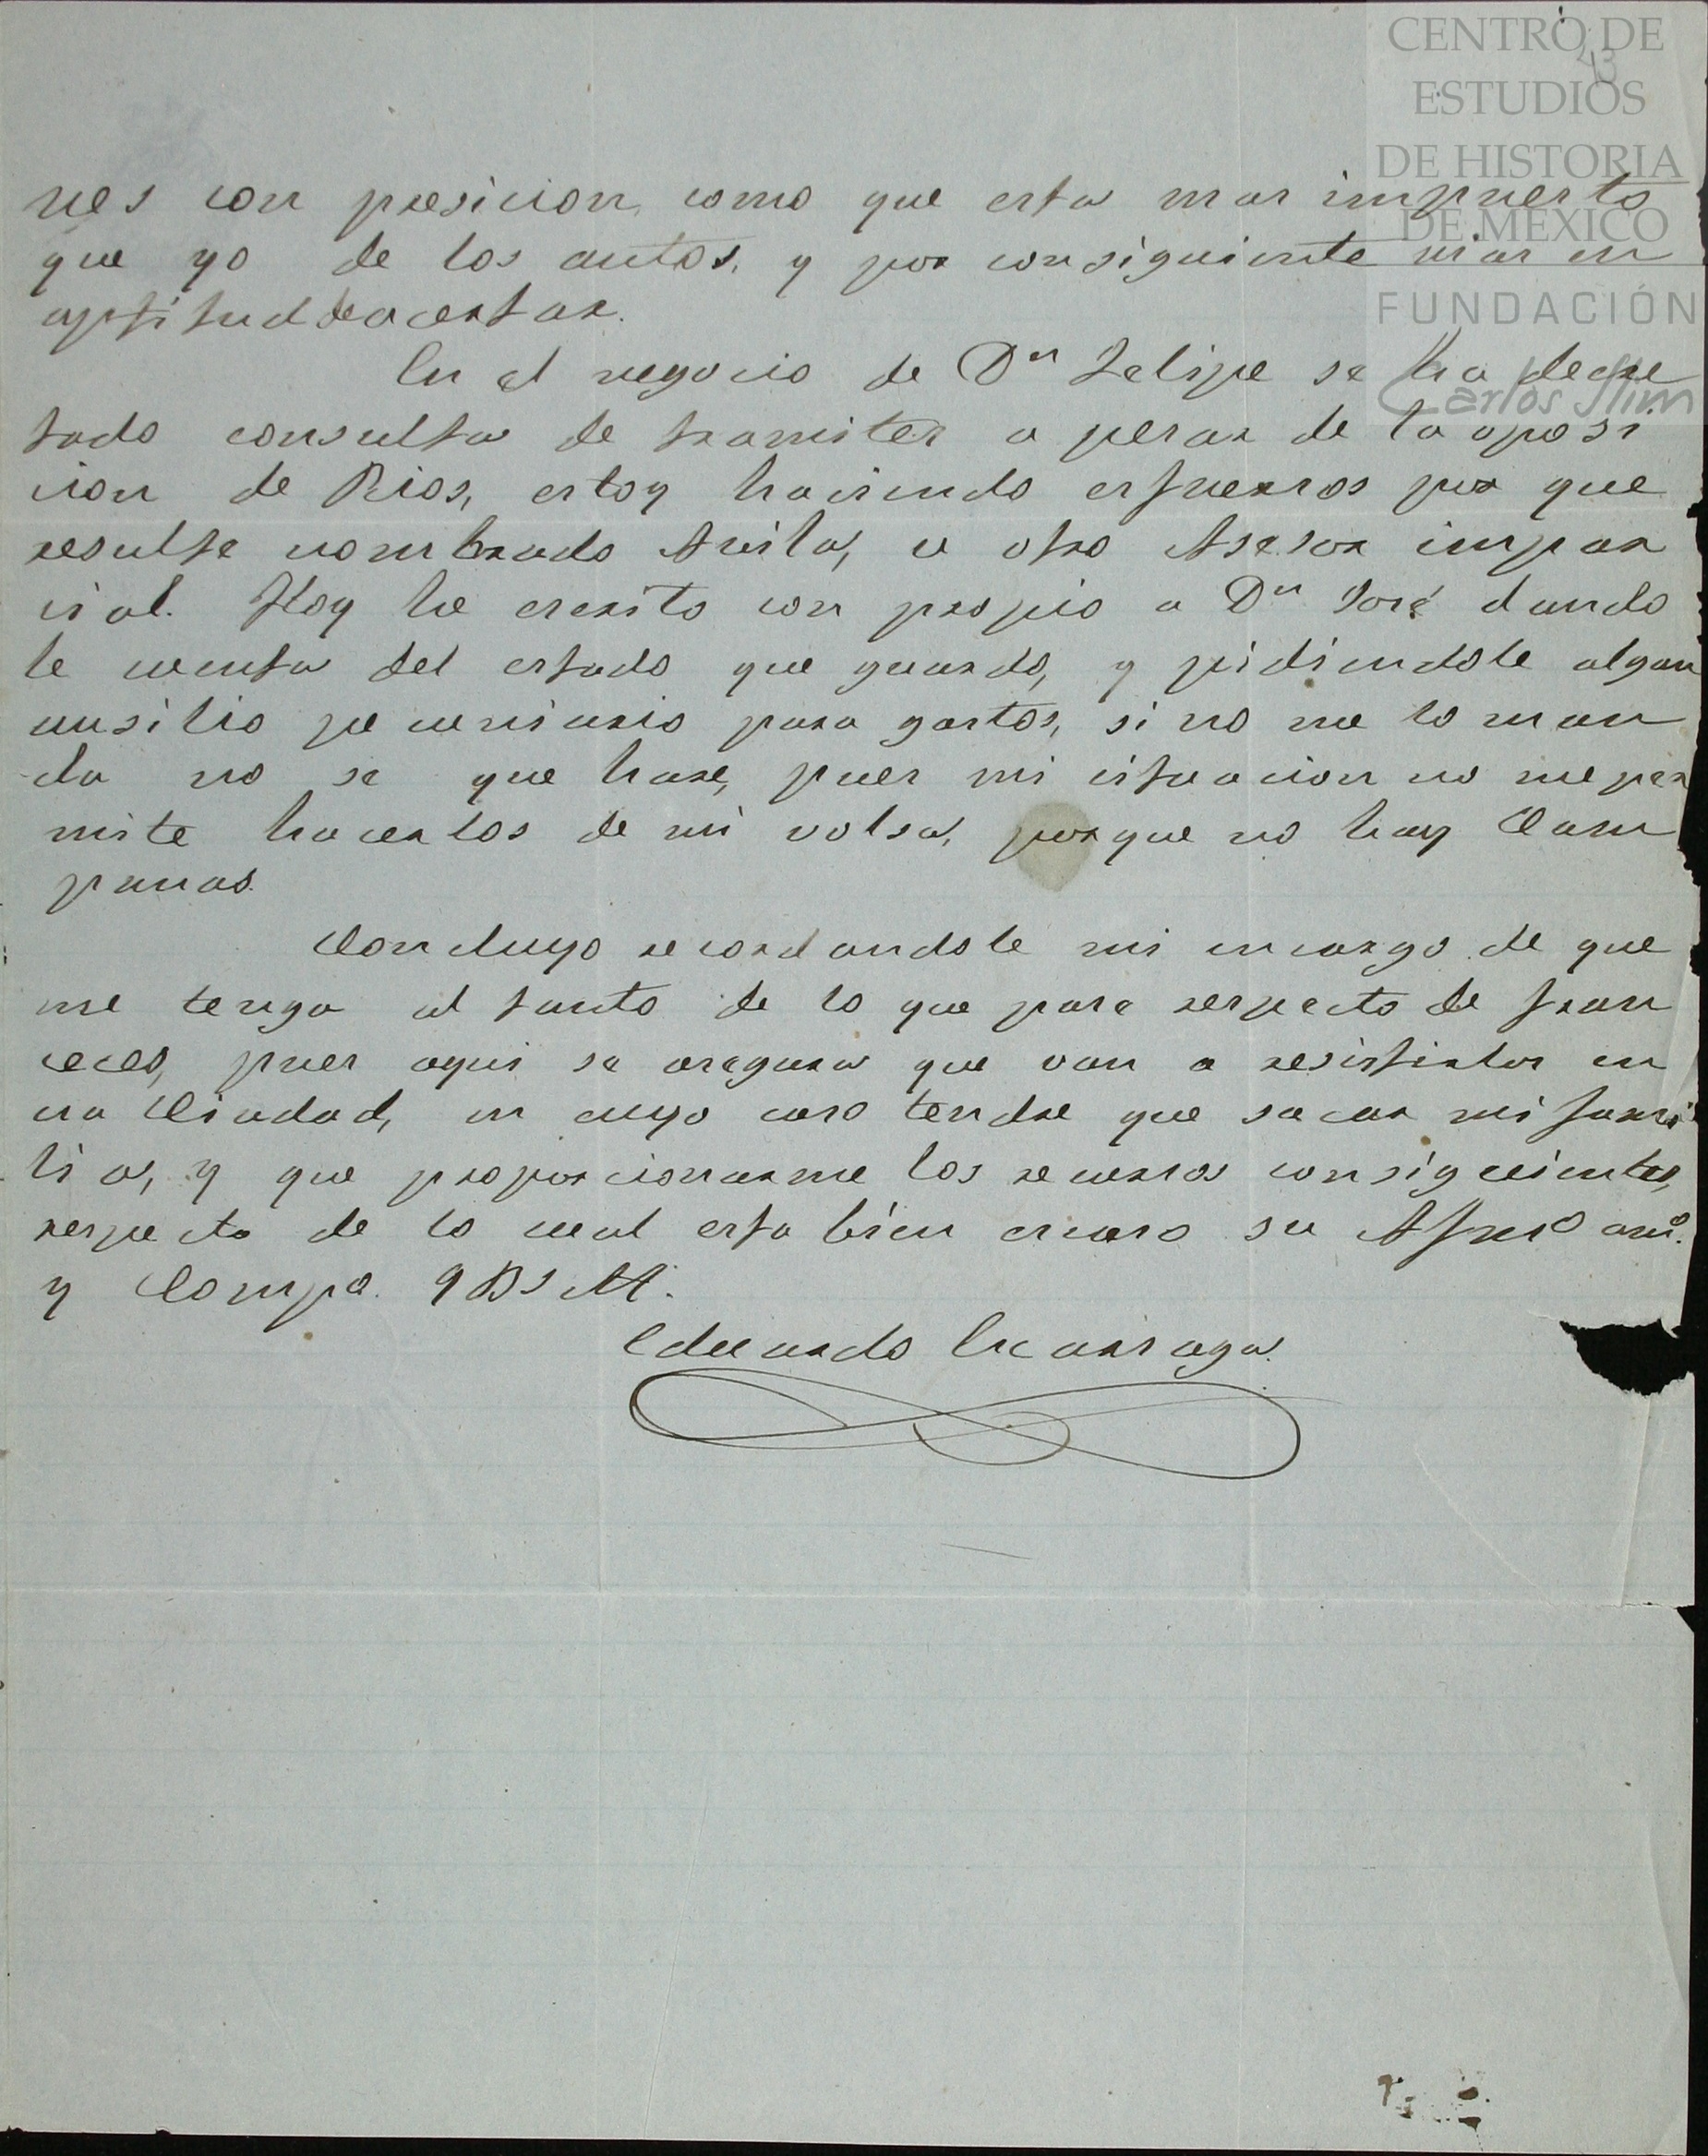 CENTRO DE
ESTUDIOS
DE HISTORIA
DE MÉXICO
FUNDACIÓN
Carlos Slim
43
nes con presicion, como que esta mas impuesto
que yo de los autos, y por consiguiente mas en
aptitud de acertar.
En el negocio de Dn Felipe se ha decre
tado consulta de tramites a pesar de la oposi
cion de Rios, estoy haciendo esfuerzos por que
resulte nombrado Avila, u otro Asesor impar
cial. Hoy he escrito con propio a Dn José dando
le cuenta del estado que guardo, y pidiendole algun
ausilio pecuniario para gastos, si no me lo man
da no se que hare, pues mi cituacion no me per
mite hacerlos de mi volsa, porque no hay Cam
panas.
Concluyo recordandole mi encargo de que
me tenga al tanto de lo que pase respecto de fran
ceces, pues aqui se asegura que van a resistirlos en
na Ciudad, en cuyo caso tendre que sacar mi fami
lia, y que proporcionarme los recursos consiguientes,
respecto de lo cual esta bien escaso su Afmo amo.
y Compo. q B S M.
Eduardo Licarraga.